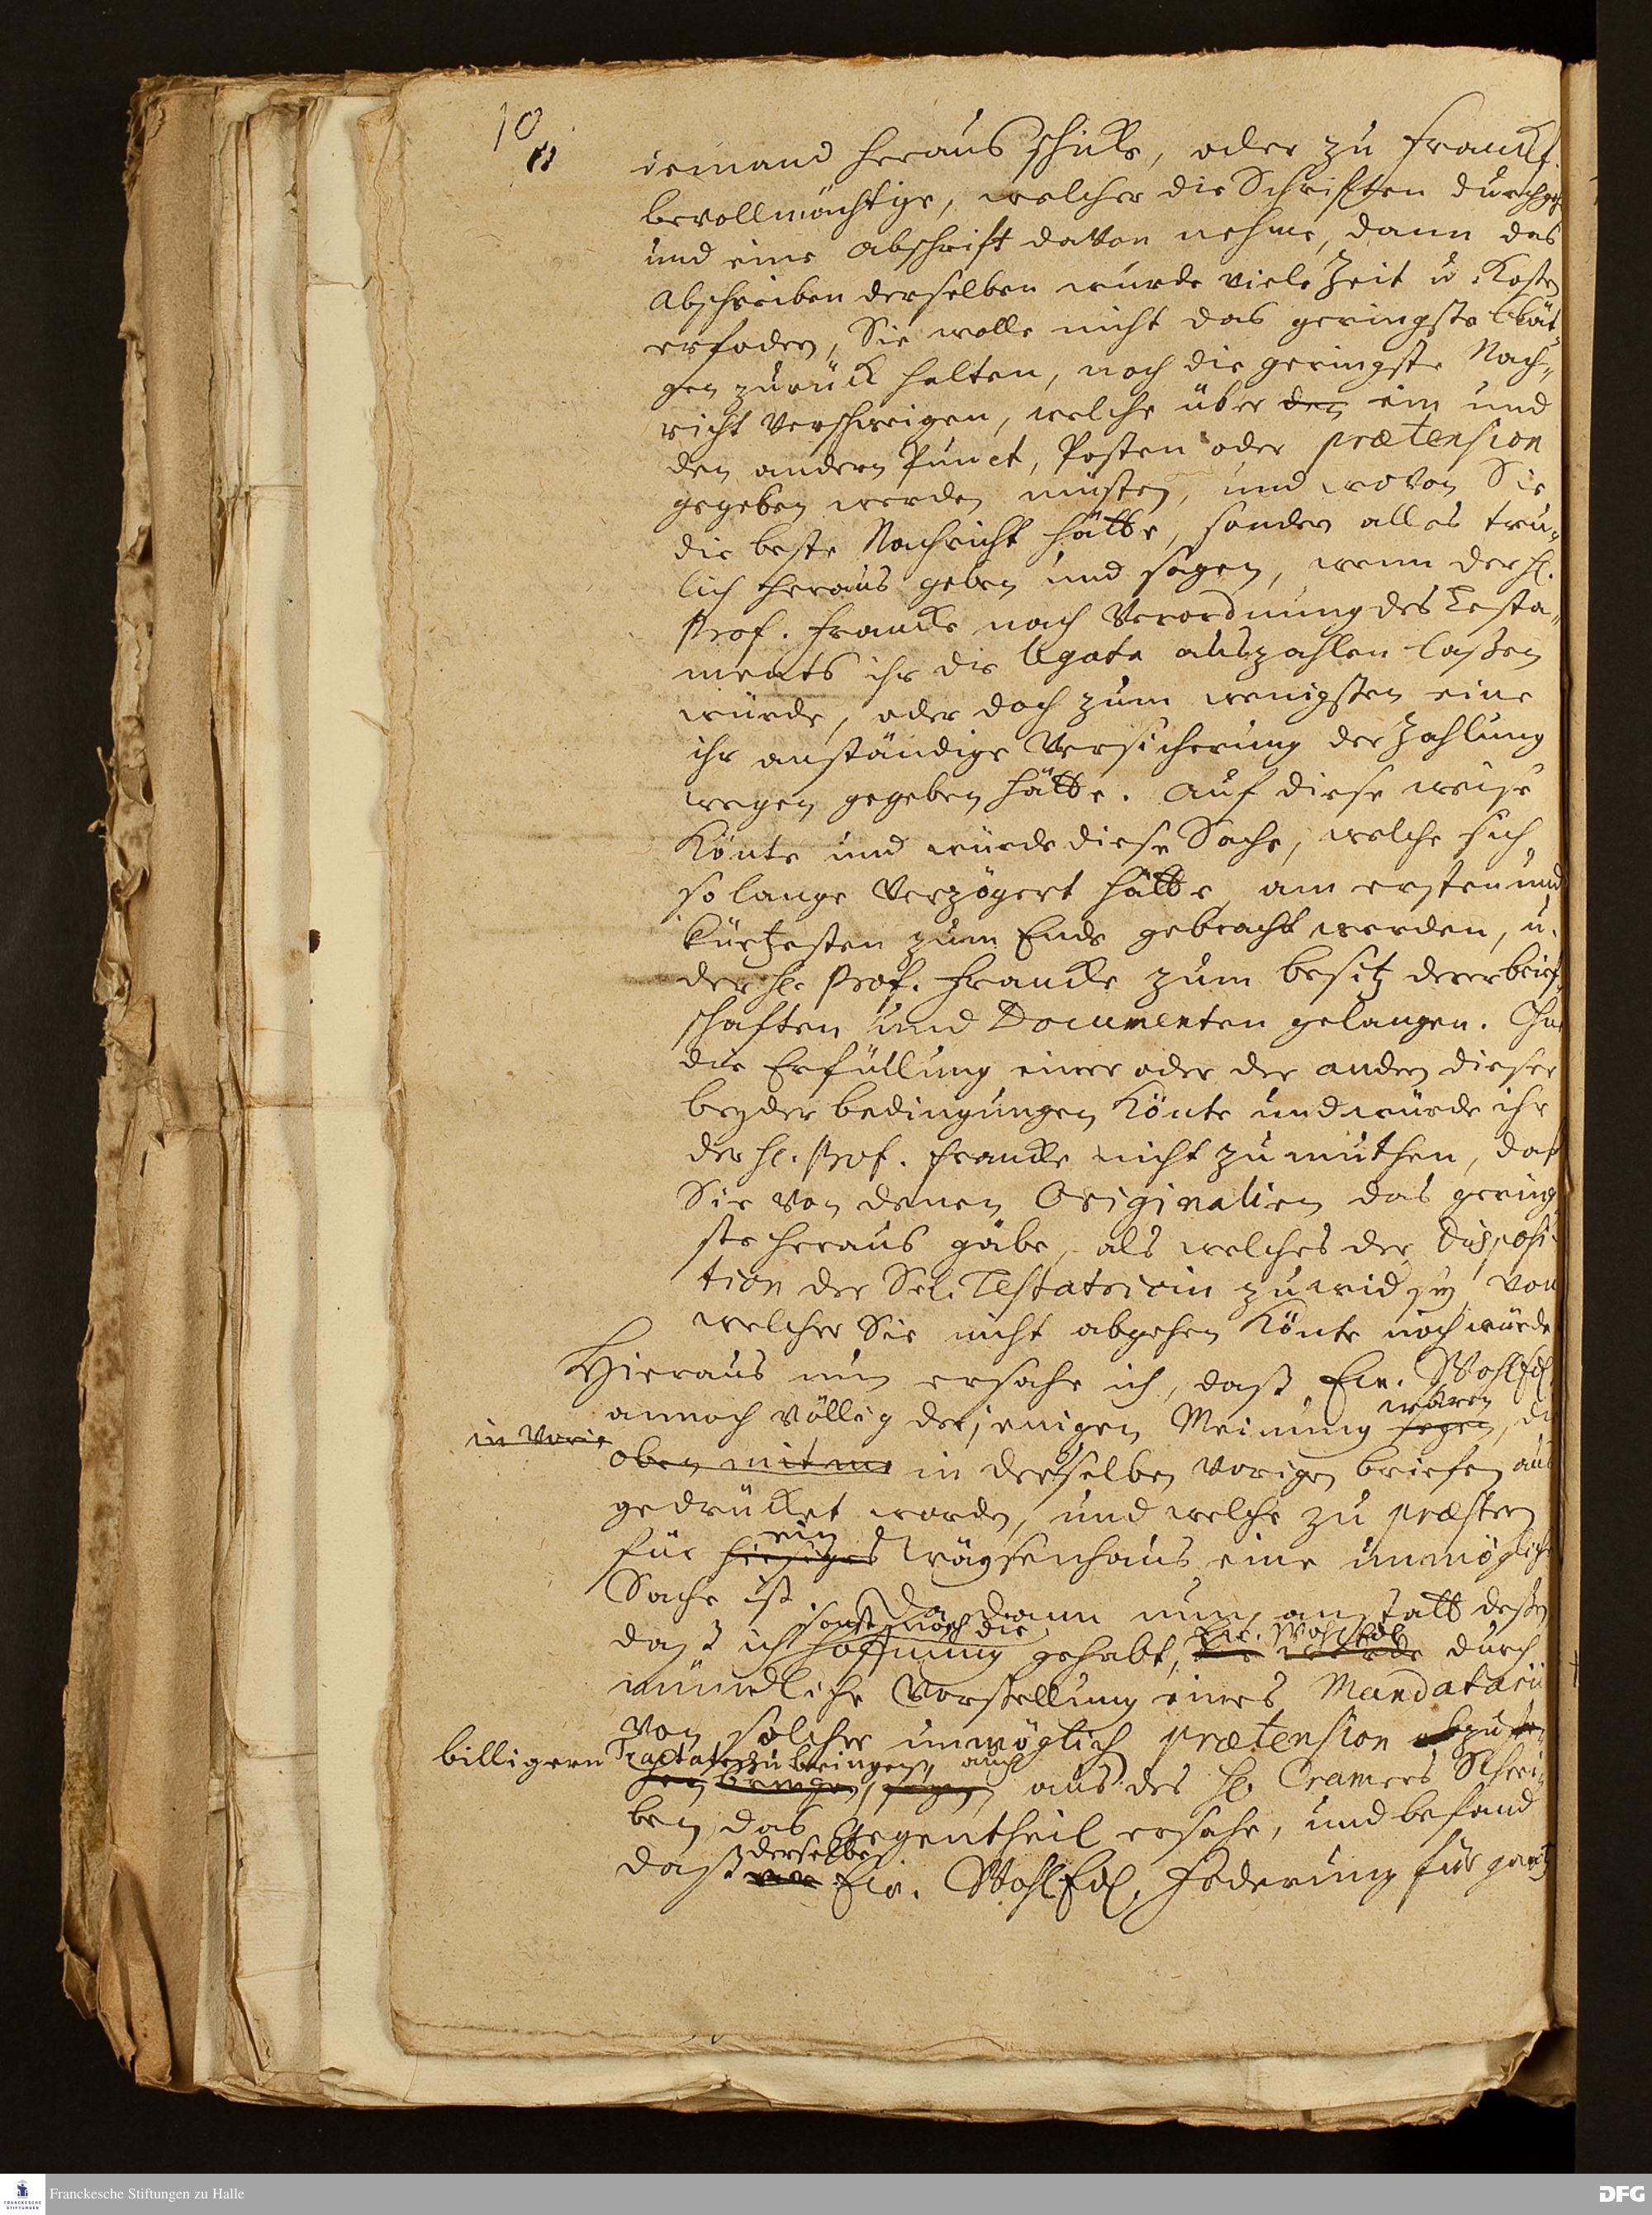 10
iemand heraus schicke, oder zu Franckf.
bevollmächtige, welcher die Schrifften durchge
und eine Abschrifft davon nehme, dann das
Abschreiben derselben würde viele Zeit u. Kosten
erfodern, Sie wolle nicht das geringste
gen zurück halten, noch die geringste Nach„
richt verschweigen, welche über den ein und
den andern Punct, Posten oder prætension
gegeben werden müsten, und wovon Sie
die beste Nachricht hätte, sondern alles treu„
lich heraus geben und sagen, wenn der H.
Prof. Francke nach Verordnung des Testa„
ments ihr die Legata auszahlen laßen
würde, oder doch zum wenigsten eine
ihr anständige Versicherung der Zahlung
wegen gegeben hätte. Auf diese weise
könte und würde diese Sache, welche sich
so lange verzögert hätte, am ersten und
kürtzesten zum Ende gebracht werden, u.
der H. Prof. Francke zum besitz derer brief„
schafften und Documenten gelangen. Ohne
die Erfüllung einer oder der andern dieser
beyder bedingungen könte und würde ihr
der H. Prof. Francke nicht zumuthen, daß
Sie von denen Originalien das gering
ste heraus gäbe, als welches der Disposi„
tion der Sel. Testatricin zuwider sey, von
welcher Sie nicht abgehen könte noch würde
Hieraus nun ersahe ich, daß Ew. WohlEdl
wären
annoch völlig derjenigen Meinung seyen, die
in vorig
oben mit mir in derselben vorigen briefen aus
gedrücket worden, und welche zu præstiren
ein
für hiesiges Wäysenhaus eine unmögliche
Sache ist. Da dann nun, anstatt deßen
sonst noch die Ew. WohlEdl
daß ich Hoffnung gehabt, Sie würde durch
mündliche Vorstellung eines Mandatarii
von solcher unmöglich prætension abzu
billigern Tractaten zu bringen, auch
bringen, aus des H. Cramers Schrei„
ben das Gegentheil ersahe, und befand
derselbe
daß Ew. WohlEdl. Foderung für gantz
Franckesche Stiftungen zu Halle
DFG